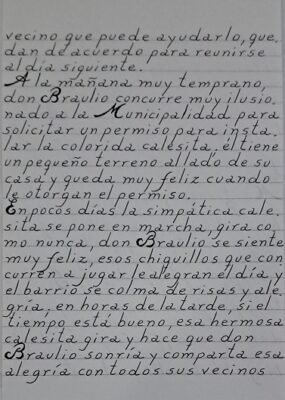 vecino que puede ayudarlo, que.
dan de acuerdo para reunirse
al día siguiente.
A la mañana muy temprano,
don Braulio concurre muy ilusio.
nado a la Municipalidad para
solicitar un permiso para insta.
lar la colorida calesita. él tiene
un pequeño terreno al lado de su
casa y queda muy feliz cuando
le otorgan el permiso.
En pocos días la simpática cale.
sita se pone en marcha, gira co
mo nunca, don Braulio se siente
muy feliz, esos chiquillos que con
curren a jugar le alegran el día y
el barrio se colma de risas y ale.
gría, en horas de la tarde, si el
tiempo está bueno, esa hermosa
calesita gira y hace que don
Braulio sonría y comparta esa
alegría con todos sus vecinos